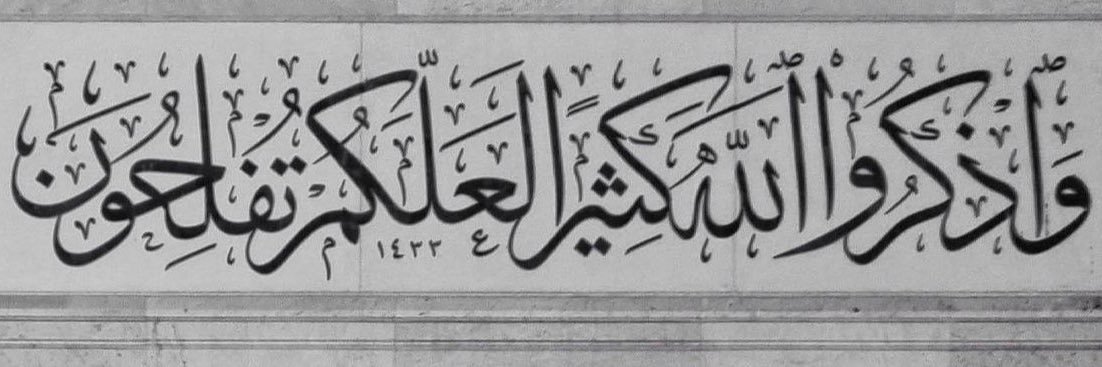 وَٱذْكُرُوا۟ ٱللَّهَ كَثِيرًا لَعَلَّكُمْ تُفْلِحُونَ
١٤٣٣